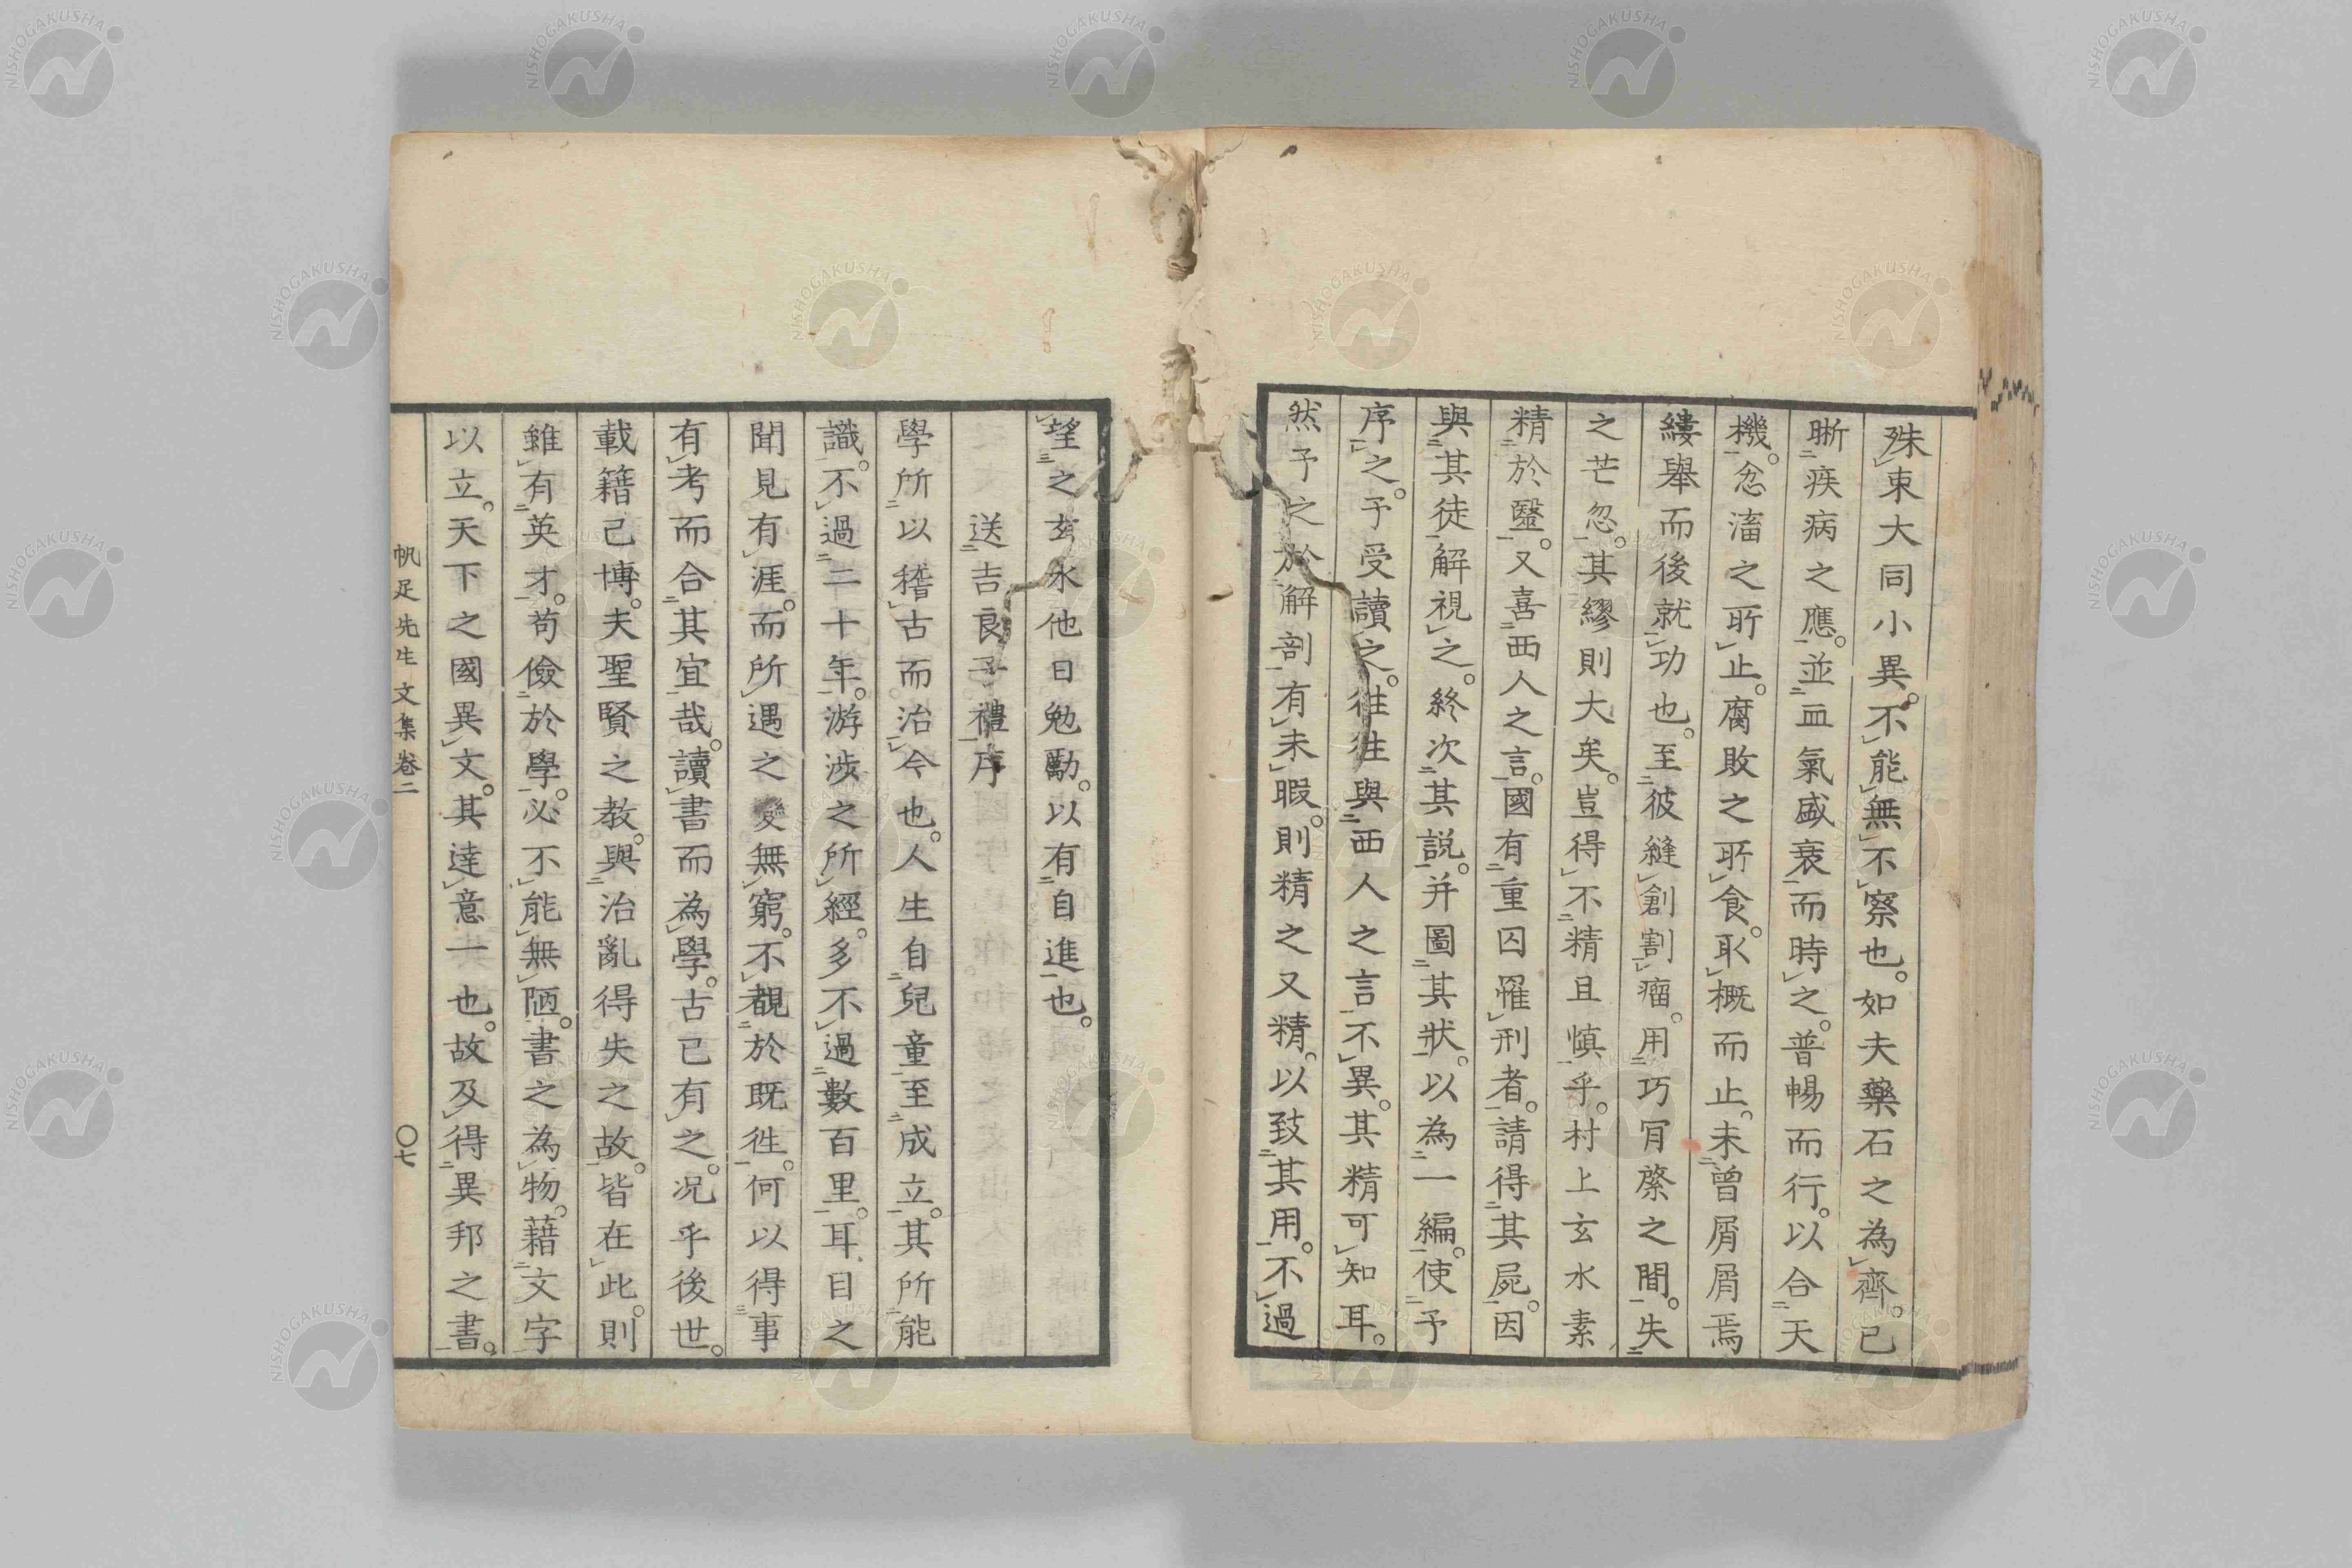 殊、東大同小異。不能無不察也。如夫藥石之為齊。已
晰疾病之應。並血氣盛衰而時之。普暢而行。以合天
機。忿滀之所止。腐敗之所食。取概而止。未曾屑屑焉
縷舉而後就功也。至彼縫創割瘤。用巧肎綮之間。失
之芒忽。其繆則大矣。豈得不精且慎乎。村上玄水素
精於毉。又喜西人之言。國有重囚罹刑者。請得其屍。因
與其徒解視之。終次其説。并圖其狀。以為一編。使予
序之。予受讀之。徃徃與西人之言不異。其精可知耳。
然予之於解剖有未暇。則精之又精。以致其用。不過
望之玄水他日勉勵。以有自進也。
送吉良子禮序
學所以稽古而治今也。人生自兒童至成立。其所能
識。不過二十年。游涉之所經。多不過數百里。耳目之
聞見有涯。而所遇之變無窮。不覩於既徃。何以得事
有考而合其宜哉。讀書而為學。古已有之。况乎後世。
載籍已博。夫聖賢之教。與治亂得失之故。皆在此。則
雖有英才。苟儉於學。必不能無陋。書之為物。藉文字
以立。天下之國異文。其達意一也。故及得異邦之書。
帆足先生文集卷二
〇七
NISHOGAKUSHA